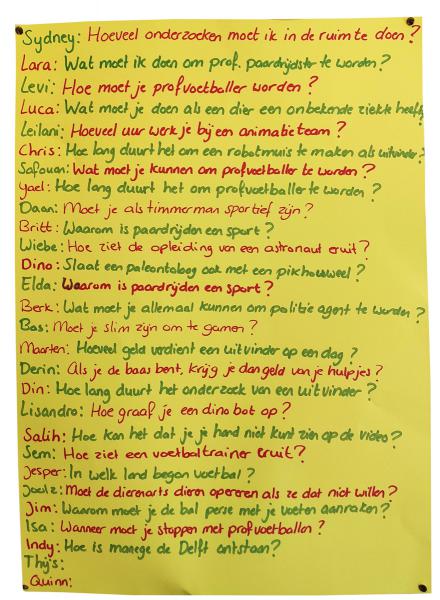 Sydney: Hoeveel onderzoeken moet ik in de ruimte doen?
Lara: Wat moet ik doen om prof. paardrijdster te worden?
Levi: Hoe moet je profvoetballer worden?
Luca: Wat moet je doen als een dier een onbekende ziekte heeft?
Leilani: Hoeveel uur werk je bij een animatieteam?
Chris: Hoe lang duurt het om een robotmuis te maken als uitvinder?
Safouan: Wat moet je kunnen om profvoetballer te worden?
Yael: Hoe lang duurt het om profvoetballer te worden?
Daan: Moet je als timmerman sportief zijn?
Britt: Waarom is paardrijden een sport?
Wiebe: Hoe ziet de opleiding van een astronaut eruit?
Dino: Slaat een paleontoloog ook met een pikhouweel?
Elda: Waarom is paardrijden een sport?
Berk: Wat moet je allemaal kunnen om politie agent te worden?
Bas: Moet je slim zijn om te gamen?
Maarten: Hoeveel geld verdient een uitvinder op een dag?
Derin: Als je de baas bent, krijg je dan geld van je hulpjes?
Din: Hoe lang duurt het onderzoek van een uitvinder?
Lisandro: Hoe graaf je een dino bot op?
Salih: Hoe kan het dat je je hand niet kunt zien op de video?
Sem: Hoe ziet een voetbaltrainer eruit?
Jesper: In welk land begon voetbal?
Moet de dierenarts dieren opereren als ze dat niet willen?
Jim: Waarom moet je de bal perse met je voeten aanraken?
Isa: Wanneer moet je stoppen met profvoetballen?
Indy: Hoe is manege de Delft ontstaan?
Thijs:
Quinn: